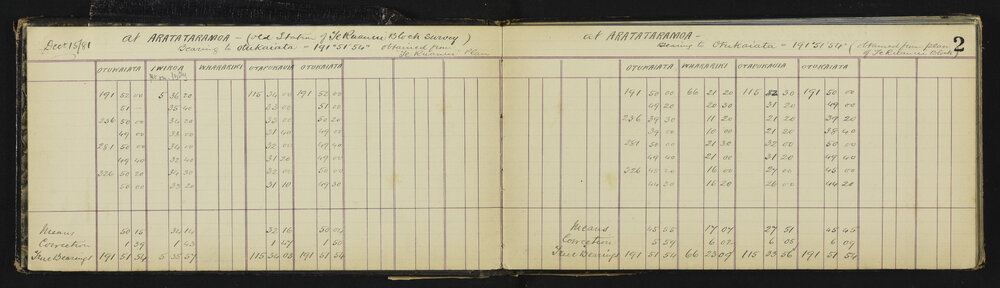 Dec 15/81 at ARATATARAMOA - (old Station of Te Kuawei Block Survey)
Bearing to Otukaiata - 191°51'54" obtained from
Plan
OTUKAIATA IWIROA WHARARIKI OTAPOKAUIA OTUKAIATA
191 52 00 5 36 20 115 34 00 191 52 00
51 - 35 40 33 00 51 00
236 50 00 34 20 33 00 50 20
49 00 33 00 31 40 49 00
281 50 00 34 00 32 00 49 40
49 40 32 40 31 20 49 00
326 50 20 34 30 32 00 50 00
50 00 33 20 31 10 49 30
Means 50 15 34 14 32 16 50 04
Correction 1 39 1 43 1 47 1 50
True Bearings 191 51 54 5 35 57 115 34 03 191 51 54
at ARATATARAMOA -
Bearing to Otukaiata - 191°51'54" (obtained from plan
2
OTUKAIATA WHARARIKI OTAPOKAUIA OTUKAIATA
191 50 00 66 21 20 115 32 30 191 50 00
49 20 20 30 31 20 49 00
236 39 30 11 20 21 20 39 20
39 00 10 00 21 20 38 40
281 50 00 21 30 32 00 50 00
49 40 21 00 31 20 49 40
326 45 00 16 00 27 00 45 00
44 30 16 20 26 00 44 20
Means 45 55 17 07 27 51 45 45
Correction 5 59 6 02 6 05 6 09
True Bearings 191 51 54 66 23 09 115 33 56 191 51 54